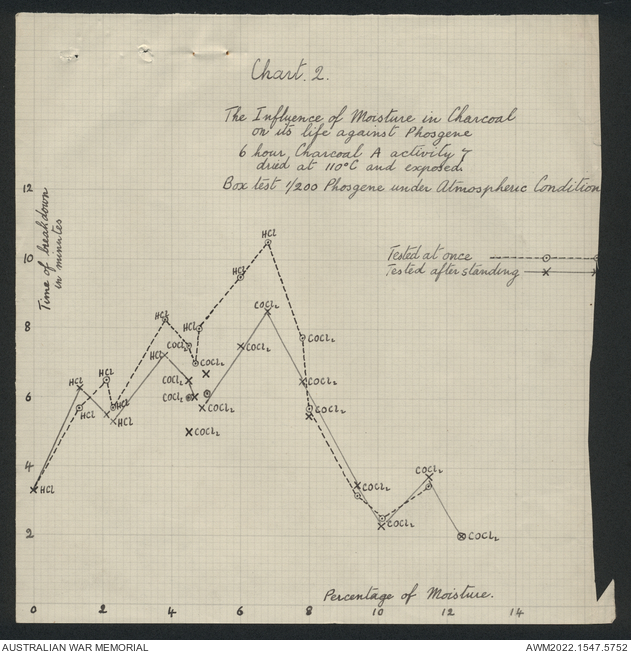 Chart. 2.
The Influence of Moisture in Charcoal
on its life against Phosgene
6 hour Charcoal A activity 7
dried at 110°C and exposed.
Box test 1/200 Phosgene under Atmospheric Condition
Time of breakdown
in minutes
Tested at once
Tested after standing
12
10
8
6
4
2
HCl
HCl
HCl
HCl
COCl2
HCl
HCl
COCl2
COCl2
COCl2
HCl
COCl2
COCl2
HCl
HCl
HCl
COCl2
COCl2
HCl
HCl
COCl2
COCl2
COCl2
HCl
COCl2
COCl2
Percentage of Moisture.
0
2
4
6
8
10
12
14
AUSTRALIAN WAR MEMORIAL
AWM2022.1547.5752